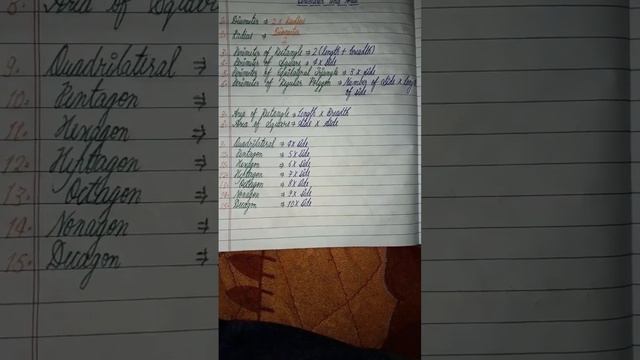 Perimeter and Area
1. Diameter ⇒ 2 x Radius
2. Radius ⇒ Diameter
2
3. Perimeter of Rectangle ⇒ 2 (Length + Breadth)
4. Perimeter of Square ⇒ 4 x Side
5. Perimeter of Equilateral Triangle ⇒ 3 x side
6. Perimeter of Regular Polygon ⇒ Number of side x length
of side
7. Area of Rectangle ⇒ Length x Breadth
8. Area of Square ⇒ Side x side
9. Quadrilateral ⇒ 4 x side
10. Pentagon ⇒ 5 x side
11. Hexagon ⇒ 6 x side
12. Heptagon ⇒ 7 x side
13. Octagon ⇒ 8 x side
14. Nonagon ⇒ 9 x side
15. Decagon ⇒ 10 x side
8. Area of Squar
9. Quadrilateral ⇒
10. Pentagon ⇒
11. Hexagon ⇒
12. Heptagon ⇒
13. Octagon ⇒
14. Nonagon ⇒
15. Decagon ⇒